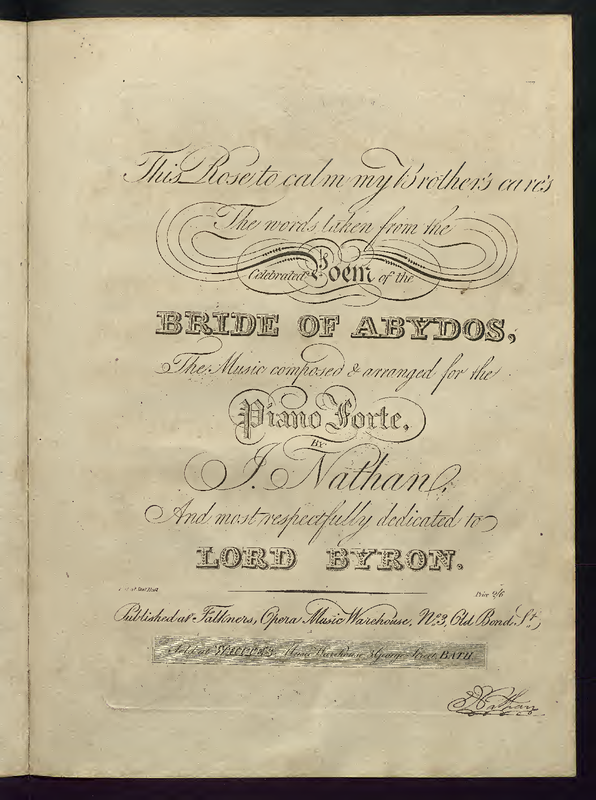 This Rose to calm my Brother's cares
The words taken from the
Celebrated Poem of the
BRIDE OF ABYDOS,
The Music composed & arranged for the
Piano Forte,
BY
I. Nathan,
And most respectfully dedicated to
LORD BYRON.
Price 2/6
Published at Falkners, Opera Music Warehouse, No. 3, Old Bond St.
Sold at Music Warehouse George Street BATH
I Nathan